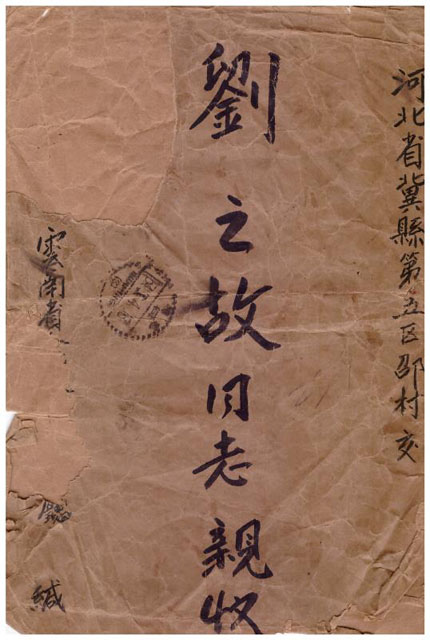 河北省冀縣第五区邵村交
劉之故同志親收
雲南省
緘